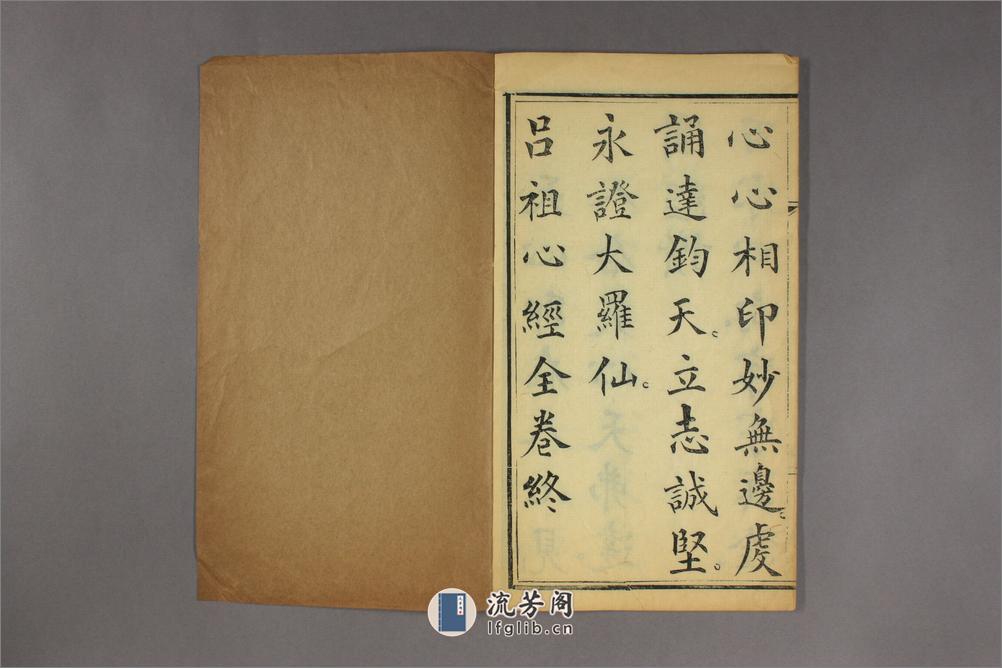 心心相印妙無邊。虔
誦達鈞天。立志誠堅。
永證大羅仙。
呂祖心經全卷終
流芳阁
lfglib.cn